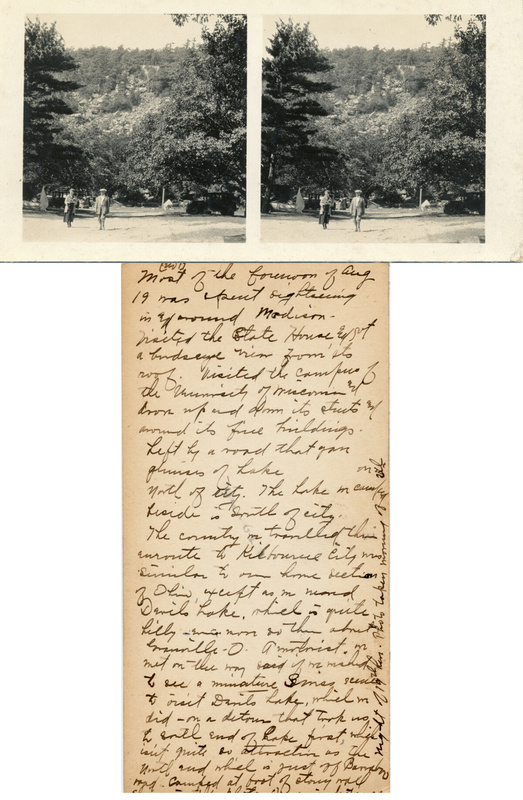 (over)
Most of the forenoon of Aug
19 was spent sightseeing
in & around Madison.
Visited the State House & got
a birdseye view from its
roof. Visited the campus of
the University of Wisconsin &
drove up and down its streets &
around its fine buildings.
Left by a road that gave
glimpses of Lake
North of city. The Lake we camped
beside is South of city.
The country we travelled thru
enroute to Kilbourne City was
similar to our home section
of Ohio, except as we neared
Devils Lake, which is quite
hilly - more so than about
Granville - O. A motorist, we
met on the way said if we wished
to see a miniature Swiss scene
to visit Devils Lake, which we
did - on a detour that took us
to south end of Lake first, which
isn't quite so attractive as the
North end which is just of
road. Camped at foot of stony wall
on
night of 19th Photo taken morning of